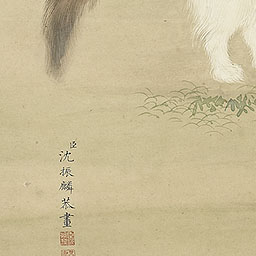 臣沈振麟恭畫